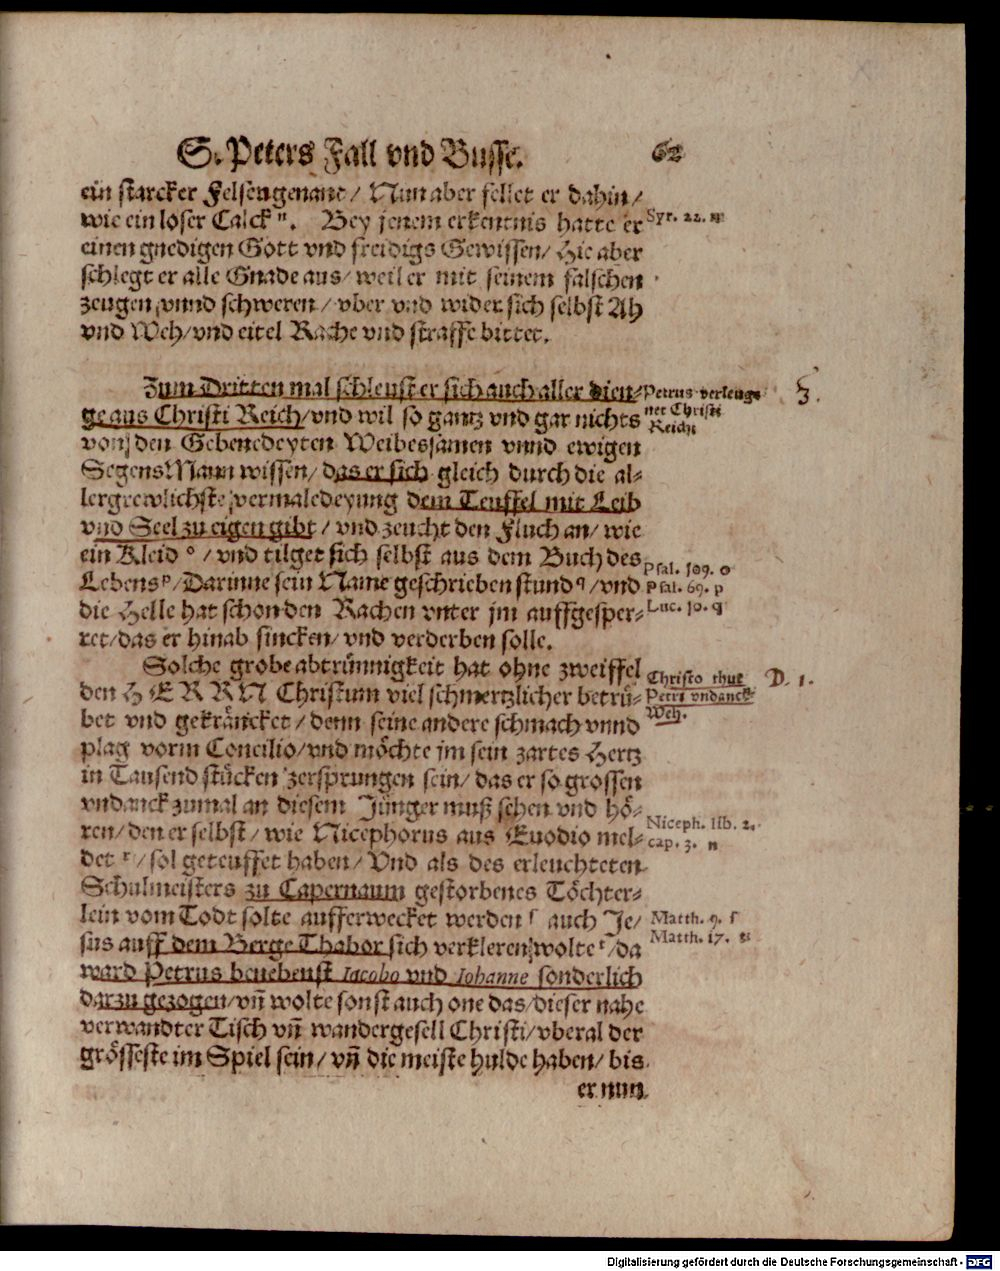 S. Peters Fall vnd Busse. 62
ein starcker Felsen genant / Nun aber fellet er dahin /
wie ein loser Calck ⁿ. Bey jenem erkentnis hatte er
Syr. 22. n
einen gnedigen Gott vnd freidigs Gewissen / Hie aber
schlegt er alle Gnade aus / weil er mit seinem falschen
zeugen / vnnd schweren / vber vnd wider sich selbst Ah
vnd Weh / vnd eitel Rache vnd straffe bittet.
Zum Dritten mal schleust er sich auch aller dien-
Petrus verleug-
3.
ge aus Christi Reich / vnd wil so gantz vnd gar nichts
net Christi
Reich
von den Gebenedeyten Weibessamen vnnd ewigen
SegensMann wissen / das er sich gleich durch die al-
lergrewlichste vermaledeyung dem Teuffel mit Leib
vnd Seel zu eigen gibt / vnd zeucht den Fluch an / wie
ein Kleid ᵒ / vnd tilget sich selbst aus dem Buch des
Psal. 109. o
Lebens ᵖ / Darinne sein Name geschrieben stund q / vnd
Psal. 69. p
die Helle hat schon den Rachen vnter jm auffgesper-
Luc. 10. q
ret / das er hinab sincken / vnd verderben solle.
Solche grobe abtrünnigkeit hat ohne zweiffel
Christo thut
D. 1.
den HERRN Christum viel schmertzlicher betrü-
Petri vndanck
bet vnd gekräncket / denn seine andere schmach vnnd
Weh.
plag vorm Concilio / vnd möchte jm sein zartes Hertz
in Tausend stücken zersprungen sein / das er so grossen
vndanck zumal an diesem Jünger muß sehen vnd hö-
ren / den er selbst / wie Nicephorus aus Euodio mel-
Niceph. lib. 2.
cap. 3.
det ʳ / sol geteuffet haben / Vnd als des erleuchteten
Schulmeisters zu Capernaum gestorbenes Töchter-
lein vom Todt solte aufferwecket werden ſ auch Je-
Matth. 9. ſ
sus auff dem Berge Thabor sich verkleren wolte ᵗ / da
Matth. 17. t
ward Petrus benebenst Iacobo vnd Iohanne sonderlich
darzu gezogen / vñ wolte sonst auch one das / dieser nahe
verwandter Tisch vñ wandergesell Christi / vberal der
grösseste im Spiel sein / vñ die meiste hulde haben / bis
er nun
Digitalisierung gefördert durch die Deutsche Forschungsgemeinschaft - DFG